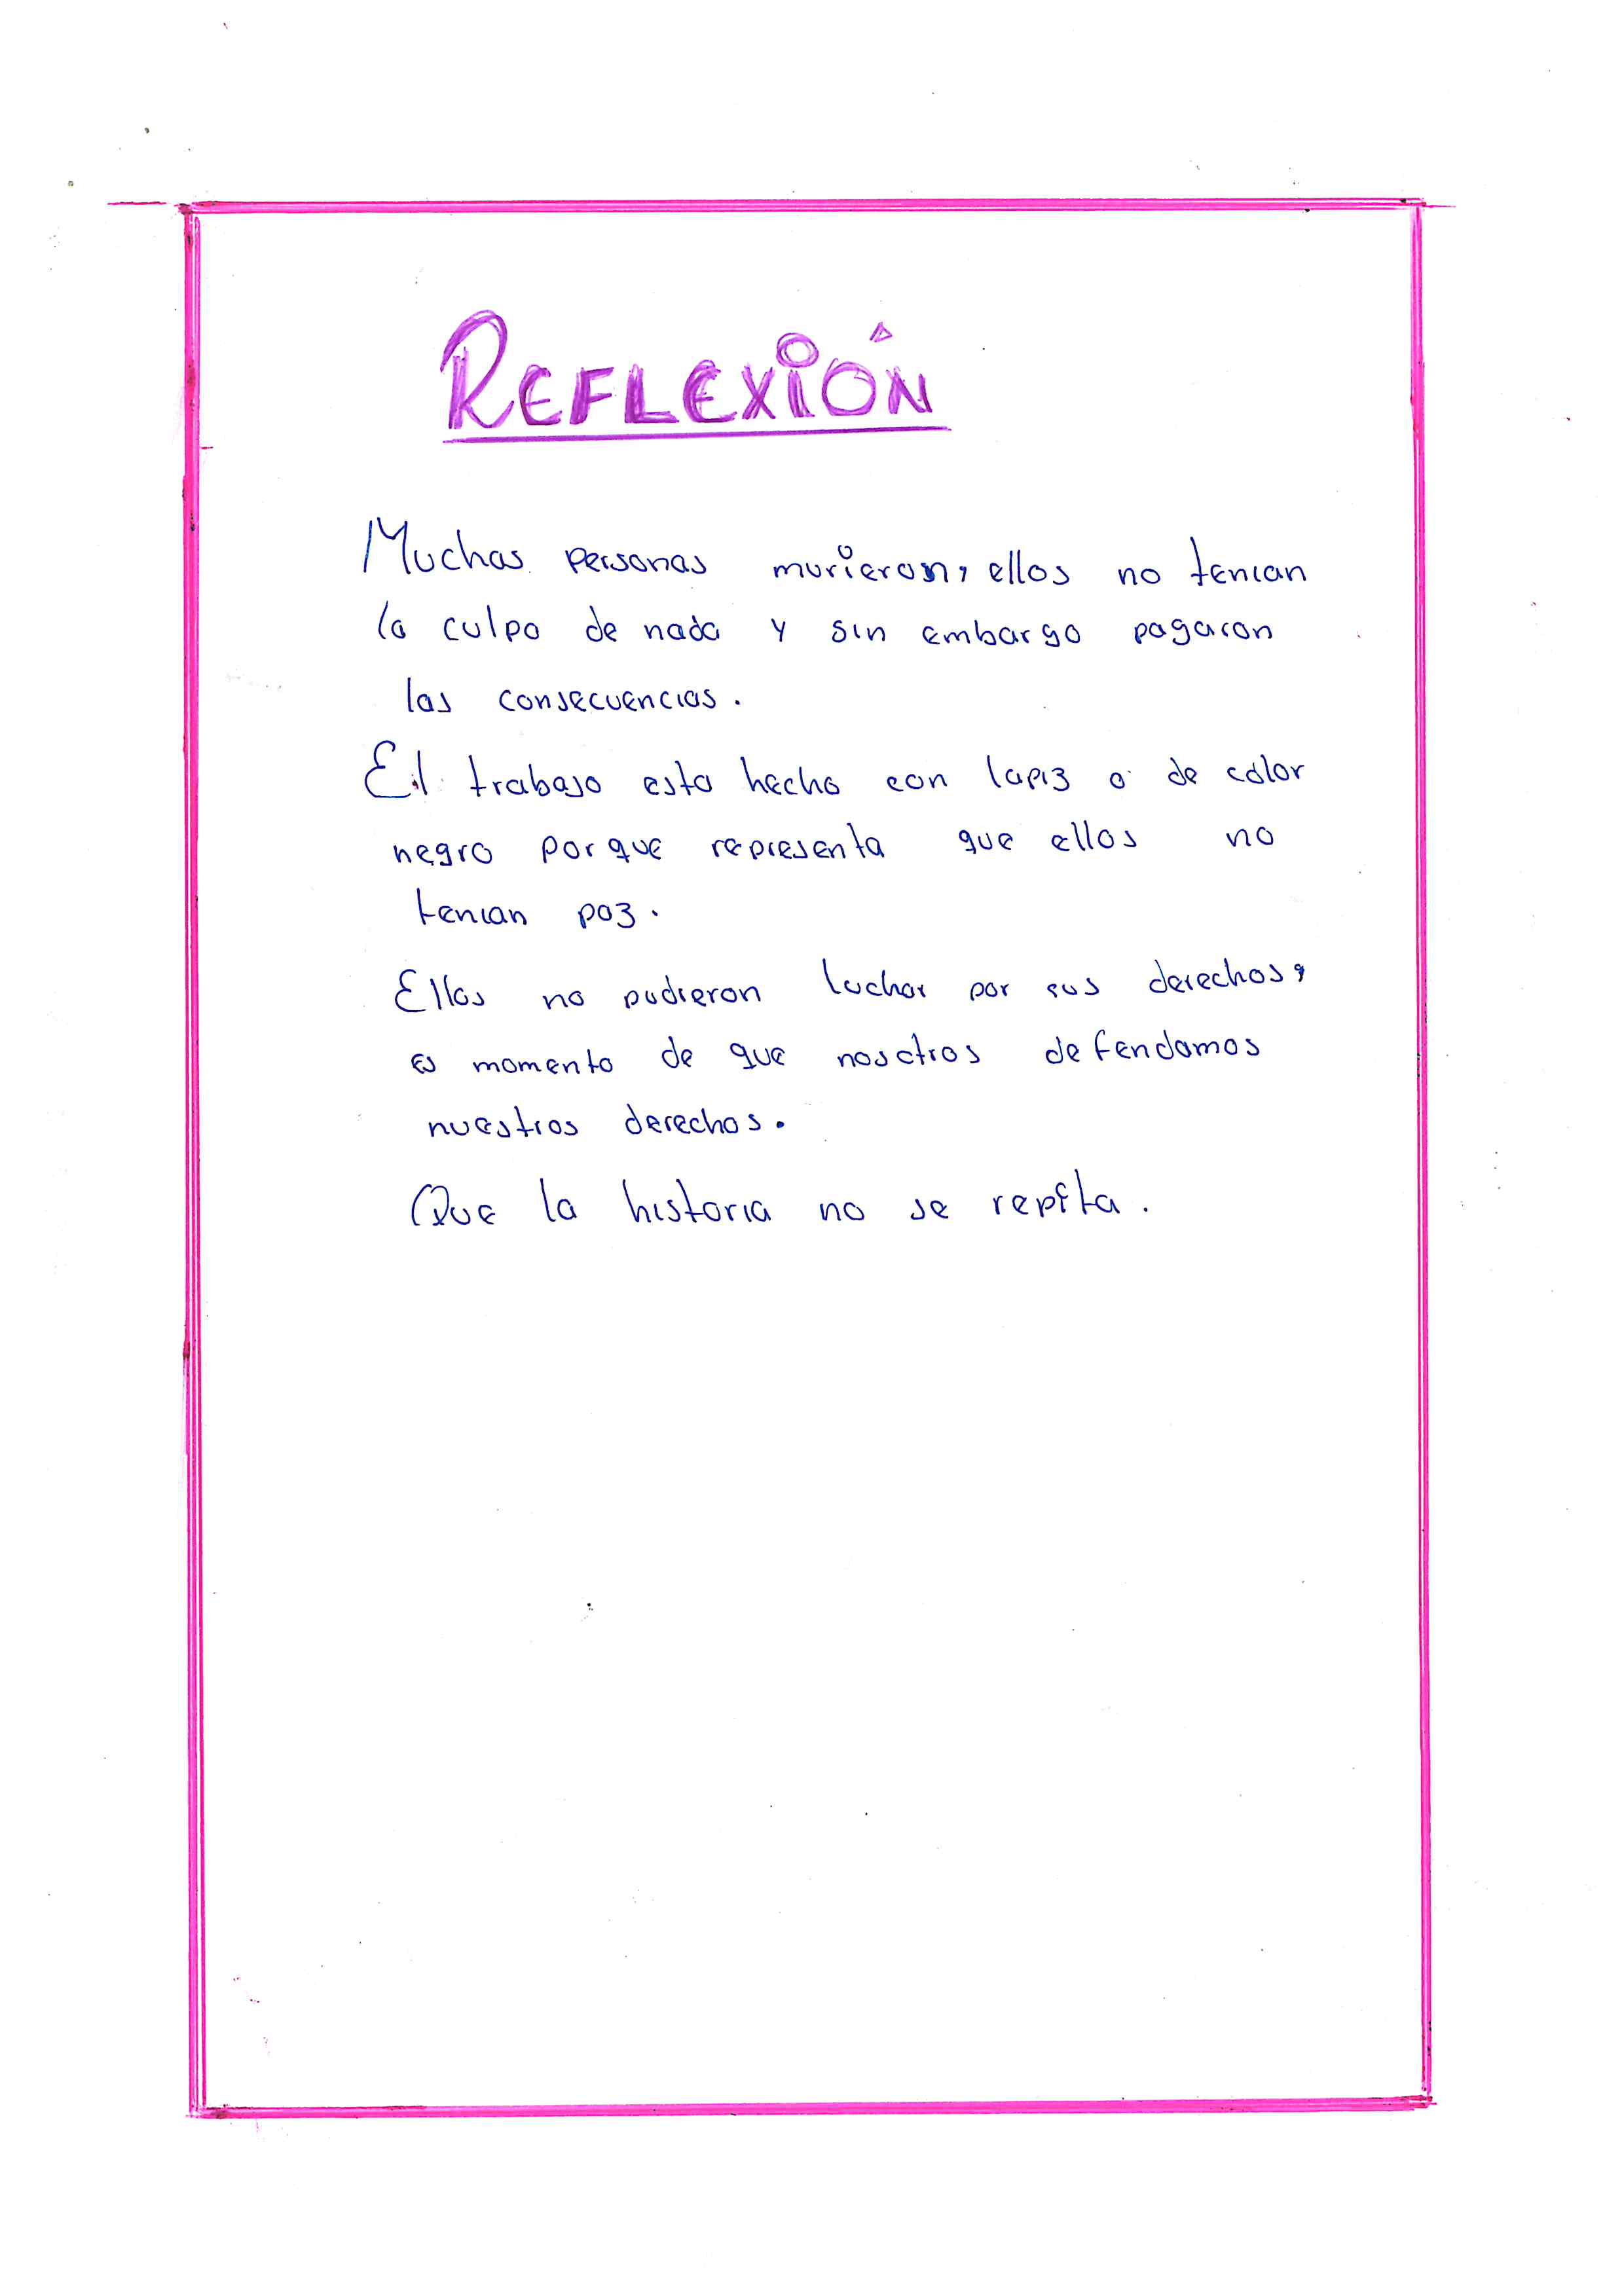 REFLEXIÓN
Muchas personas murieron, ellos no tenian
la culpa de nada y sin embargo pagaron
las consecuencias.
El trabajo esta hecho con lapiz o de color
negro porque representa que ellos no
tenian paz.
Ellos no pudieron luchar por sus derechos,
es momento de que nosotros defendamos
nuestros derechos.
Que la historia no se repita.